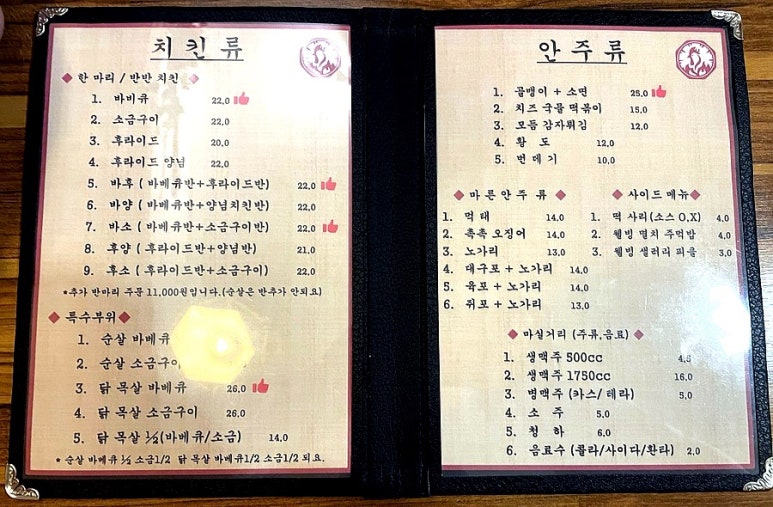 치킨류
◆ 한 마리 / 반반 치킨 ◆
1. 바비큐 22.0
2. 소금구이 22.0
3. 후라이드 20.0
4. 후라이드 양념 22.0
5. 바후 ( 바베큐반+후라이드반) 22.0
6. 바양 ( 바베큐반+양념치킨반) 22.0
7. 바소 ( 바베큐반+소금구이반) 22.0
8. 후양 ( 후라이드반+양념반) 21.0
9. 후소 ( 후라이드반+소금구이) 22.0
*추가 반마리 주문 11,000원입니다.(순살은 반추가 안되요)
◆ 특수부위◆
1. 순살 바베큐
2. 순살 소금구이
3. 닭 목살 바베큐 26.0
4. 닭 목살 소금구이 26.0
5. 닭 목살 ½(바베큐/소금) 14.0
* 순살 바베큐 ½ 소금1/2 닭 목살 바베큐1/2 소금1/2 되요.
안주류
1. 골뱅이 + 소면 25.0
2. 치즈 국물 떡볶이 15.0
3. 모듬 감자튀김 12.0
4. 황 도 12.0
5. 번데기 10.0
◆ 마른안주 류 ◆
1. 먹태 14.0
2. 촉촉 오징어 14.0
3. 노가리 13.0
4. 대구포 + 노가리 14.0
5. 육포 + 노가리 14.0
6. 쥐포 + 노가리 13.0
◆ 사이드 메뉴◆
1. 떡 사리(소스 O,X) 4.0
2. 웰빙 멸치 주먹밥 4.0
3. 웰빙 샐러리 피클 3.0
◆ 마실거리 (주류,음료) ◆
1. 생맥주 500cc 4.5
2. 생맥주 1750cc 16.0
3. 병맥주 (카스/ 테라) 5.0
4. 소 주 5.0
5. 청 하 6.0
6. 음료수 (콜라/사이다/환타) 2.0